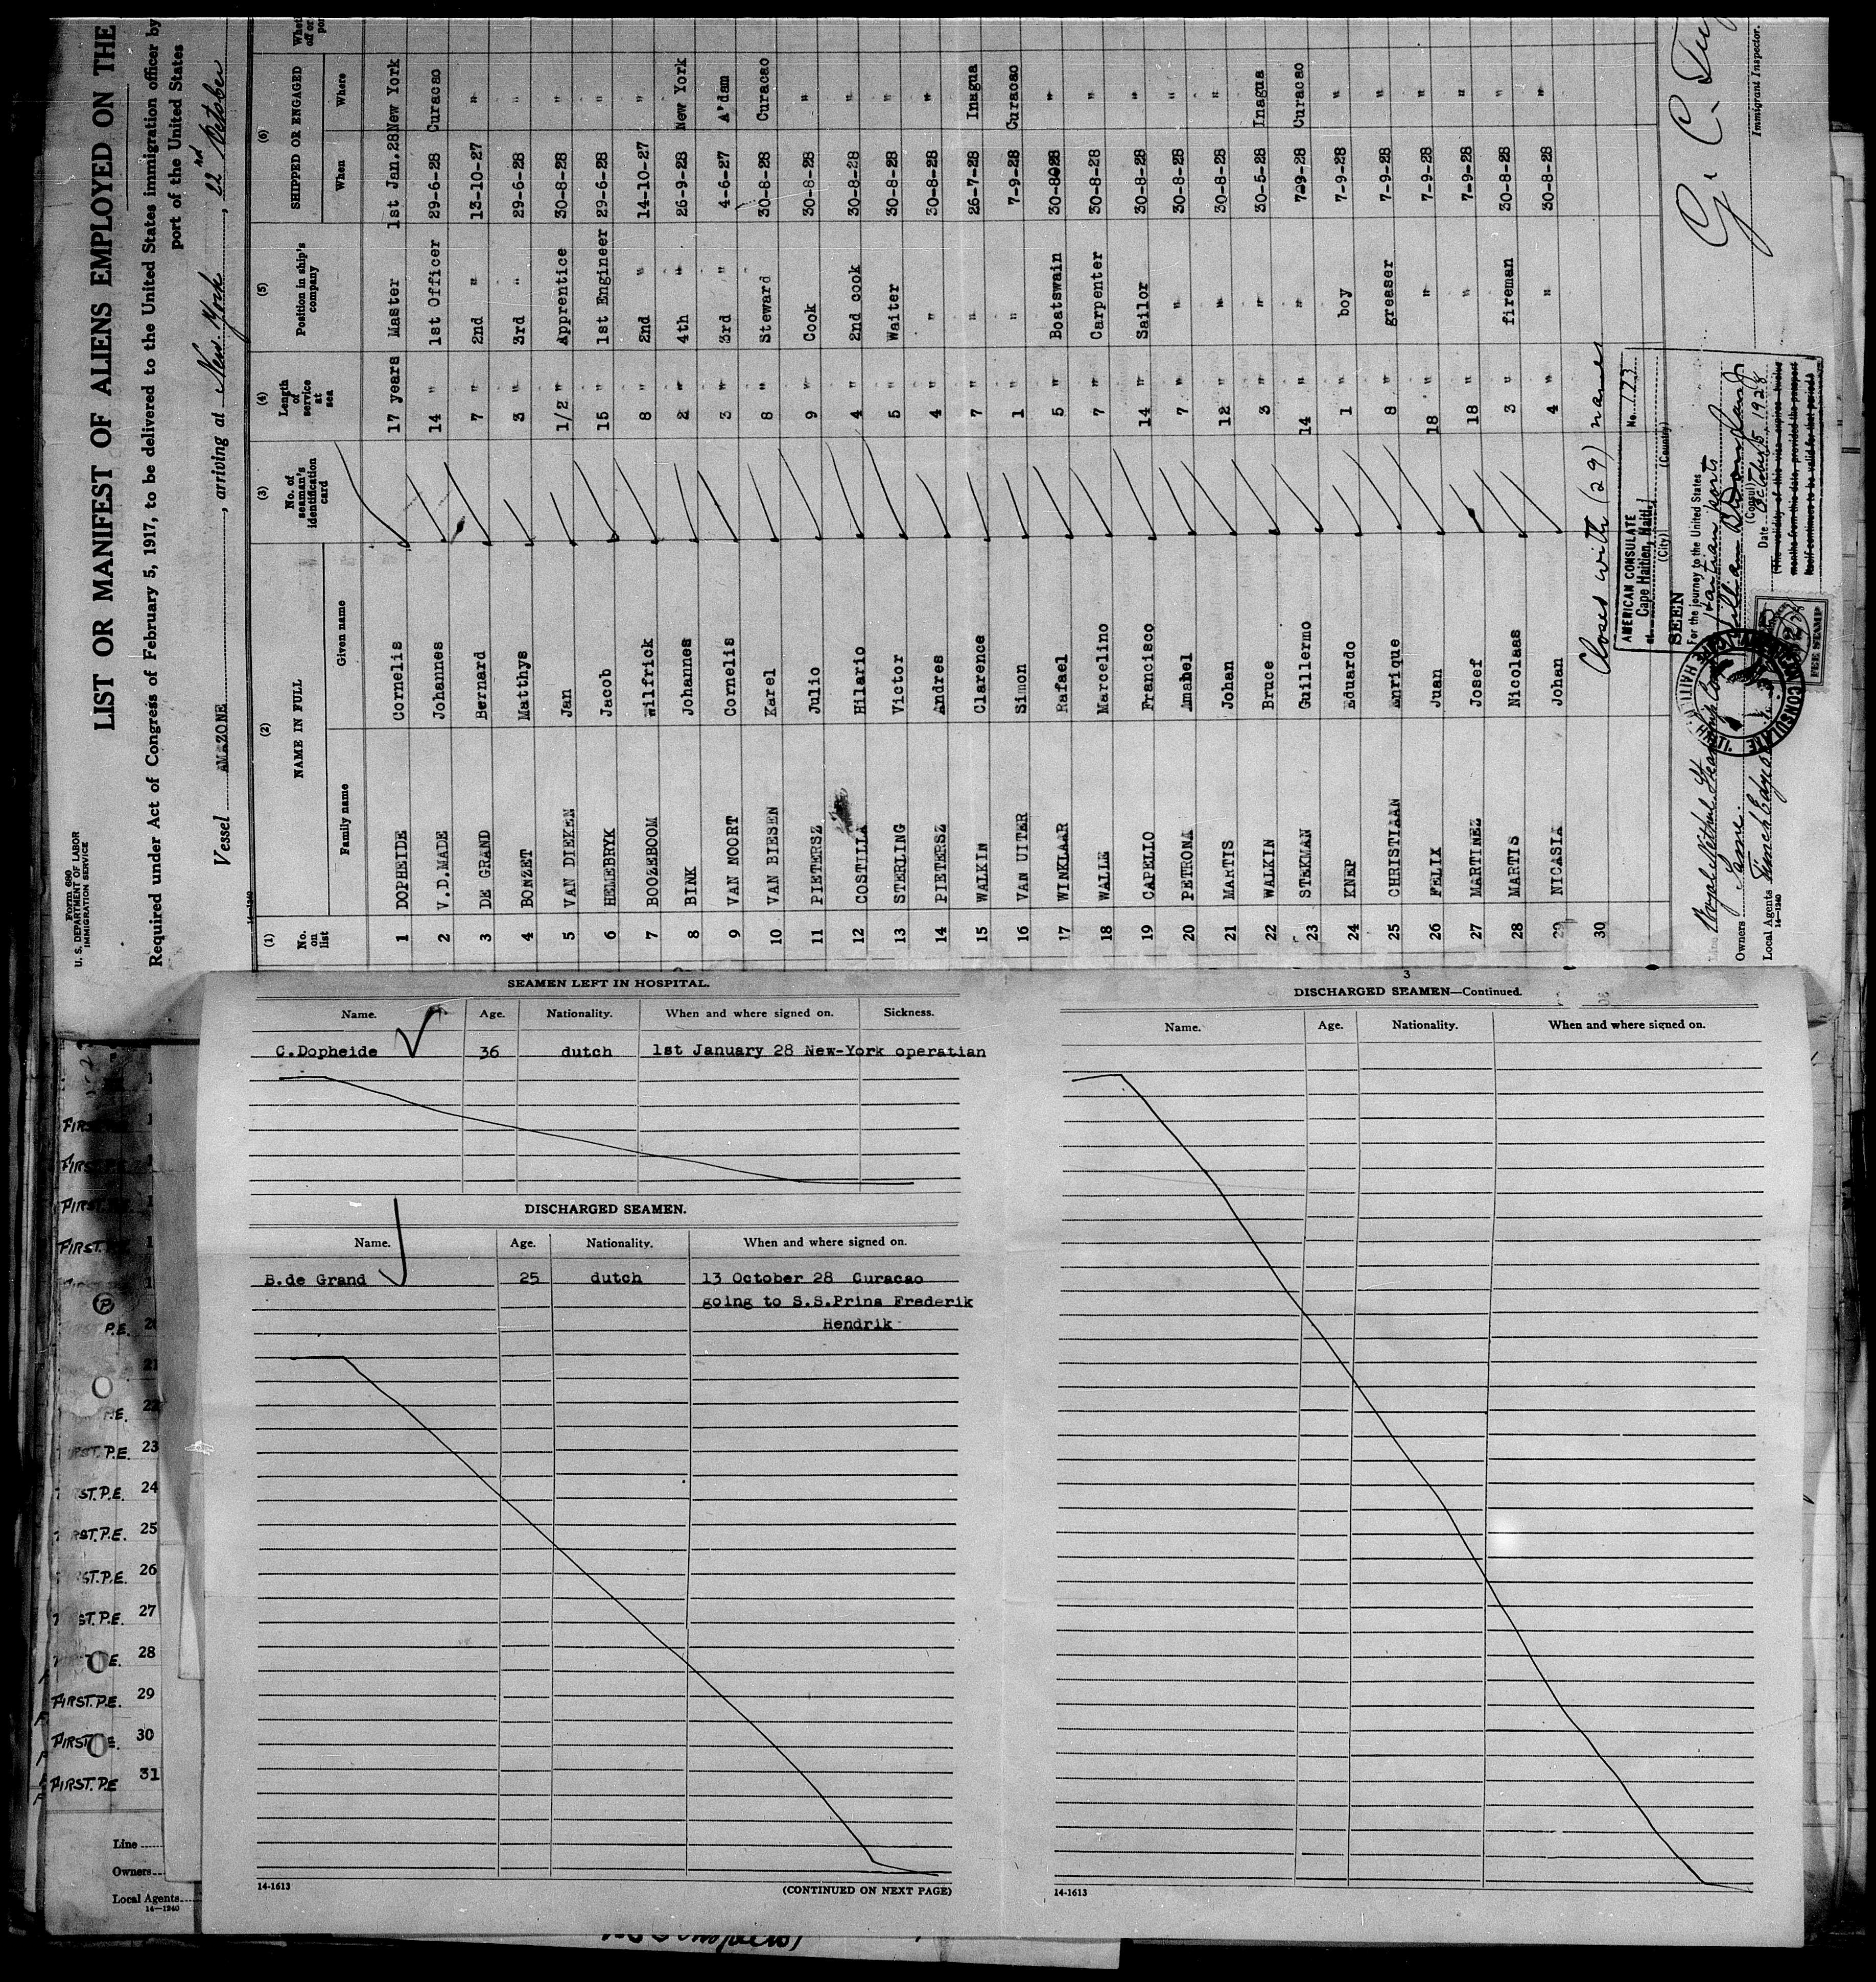 Form 680
U. S. DEPARTMENT OF LABOR
IMMIGRATION SERVICE
LIST OR MANIFEST OF ALIENS EMPLOYED ON THE
Required under Act of Congress of February 5, 1917, to be delivered to the United States immigration officer by
port of the United States
Vessel AMAZONE, arriving at New York, 22nd October
14-1240
(1) (2) (3) (4) (5) (6)
No. on list NAME IN FULL No. of seaman's identification card Length of service at sea Position in ship's company SHIPPED OR ENGAGED
Family name Given name When Where
1 DOPHEIDE Cornelis 17 years Master 1st Jan.28 New York
2 V.D.MADE Johannes 14 " 1st Officer 29-6-28 Curacao
3 DE GRAND Bernard 7 " 2nd " 13-10-27 "
4 BONZET Matthys 3 " 3rd " 29-6-28 "
5 VAN DIEKEN Jan 1/2 " Apprentice 30-8-28 "
6 HELEBRYK Jacob 15 " 1st Engineer 29-6-28 "
7 BOOZEBOOM Wilfrick 8 " 2nd " 14-10-27 "
8 BINK Johannes 2 " 4th " 26-9-28 New York
9 VAN NOORT Cornelis 3 " 3rd " 4-6-27 A'dam
10 VAN BIESEN Karel 8 " Steward 30-8-28 Curacao
11 PIETERSZ Julio 9 " Cook 30-8-28 "
12 COSTILLA Hilario 4 " 2nd cook 30-8-28 "
13 STERLING Victor 5 " Waiter 30-8-28 "
14 PIETERSZ Andres 4 " " 30-8-28 "
15 WALKIN Clarence 7 " " 26-7-28 Inagua
16 VAN UITER Simon 1 " " 7-9-28 Curacao
17 WINKLAAR Rafael 5 " Boatswain 30-8-28 "
18 WALLE Marcelino 7 " Carpenter 30-8-28 "
19 CAPELLO Francisco 14 " Sailor 30-8-28 "
20 PETRONA Amabel 7 " " 30-8-28 "
21 MARTIS Johan 12 " " 30-8-28 "
22 WALKIN Bruce 3 " " 30-5-28 Inagua
23 STEKMAN Guillermo 14 " " 7-9-28 Curacao
24 KNEP Eduardo 1 " boy 7-9-28 "
25 CHRISTIAAN Enrique 8 " greaser 7-9-28 "
26 FELIX Juan 18 " " 7-9-28 "
27 MARTINEZ Josef 18 " " 7-9-28 "
28 MARTIS Nicolaas 3 " fireman 30-8-28 "
29 NICASIA Johan 4 " " 30-8-28 "
30
Closes with (29) names
AMERICAN CONSULATE No. 123
at Cape Haitien, Haiti
(City) (Country)
SEEN
For the journey to the United States
(Consul)
Date October 5, 1928
(The validity of this visa expires twelve
months from this date, provided the passport
itself continues to be valid for that period)
FEE STAMP
Royal Netherl. Steamship Co
Owners Same
Local Agents
14-1240
Immigrant Inspector.
SEAMEN LEFT IN HOSPITAL.
Name. Age. Nationality. When and where signed on. Sickness.
C.Dopheide 36 dutch 1st January 28 New-York operatian
DISCHARGED SEAMEN.
Name. Age. Nationality. When and where signed on.
B.de Grand 25 dutch 13 October 28 Curacao
going to S.S.Prins Frederik
Hendrik
14-1613
(CONTINUED ON NEXT PAGE)
3
DISCHARGED SEAMEN—Continued.
Name. Age. Nationality. When and where signed on.
14-1613
P.E. 20
21
22
23
ST.P.E. 24
RST.P.E. 25
ST.P.E. 26
ST.P.E. 27
28
FIRST.P.E. 29
FIRST 30
FIRST.P.E 31
Line
Owners
Local Agents
14-1240